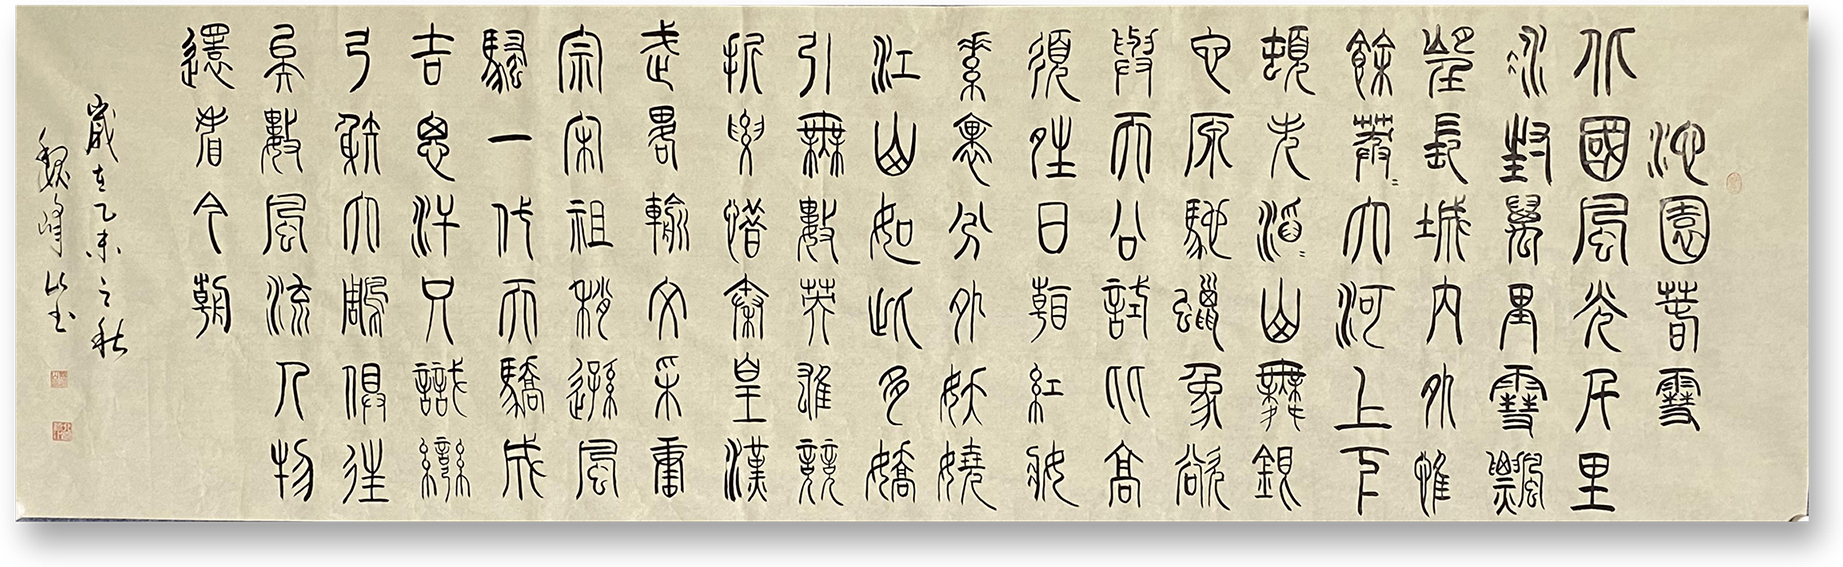 沁園春雪
北國風光千里
冰封萬里雪飄
望長城內外惟
餘莽〻大河上下
頓失滔〻山舞銀
蛇原馳蠟象欲
與天公試比高
須晴日看紅妝
素裹分外妖嬈
江山如此多嬌
引無數英雄競
折腰惜秦皇漢
武略輸文采唐
宗宋祖稍遜風
騷一代天驕成
吉思汗只識彎
弓射大鵰俱往
矣數風流人物
還看今朝
歲在乙未之秋
魏峰